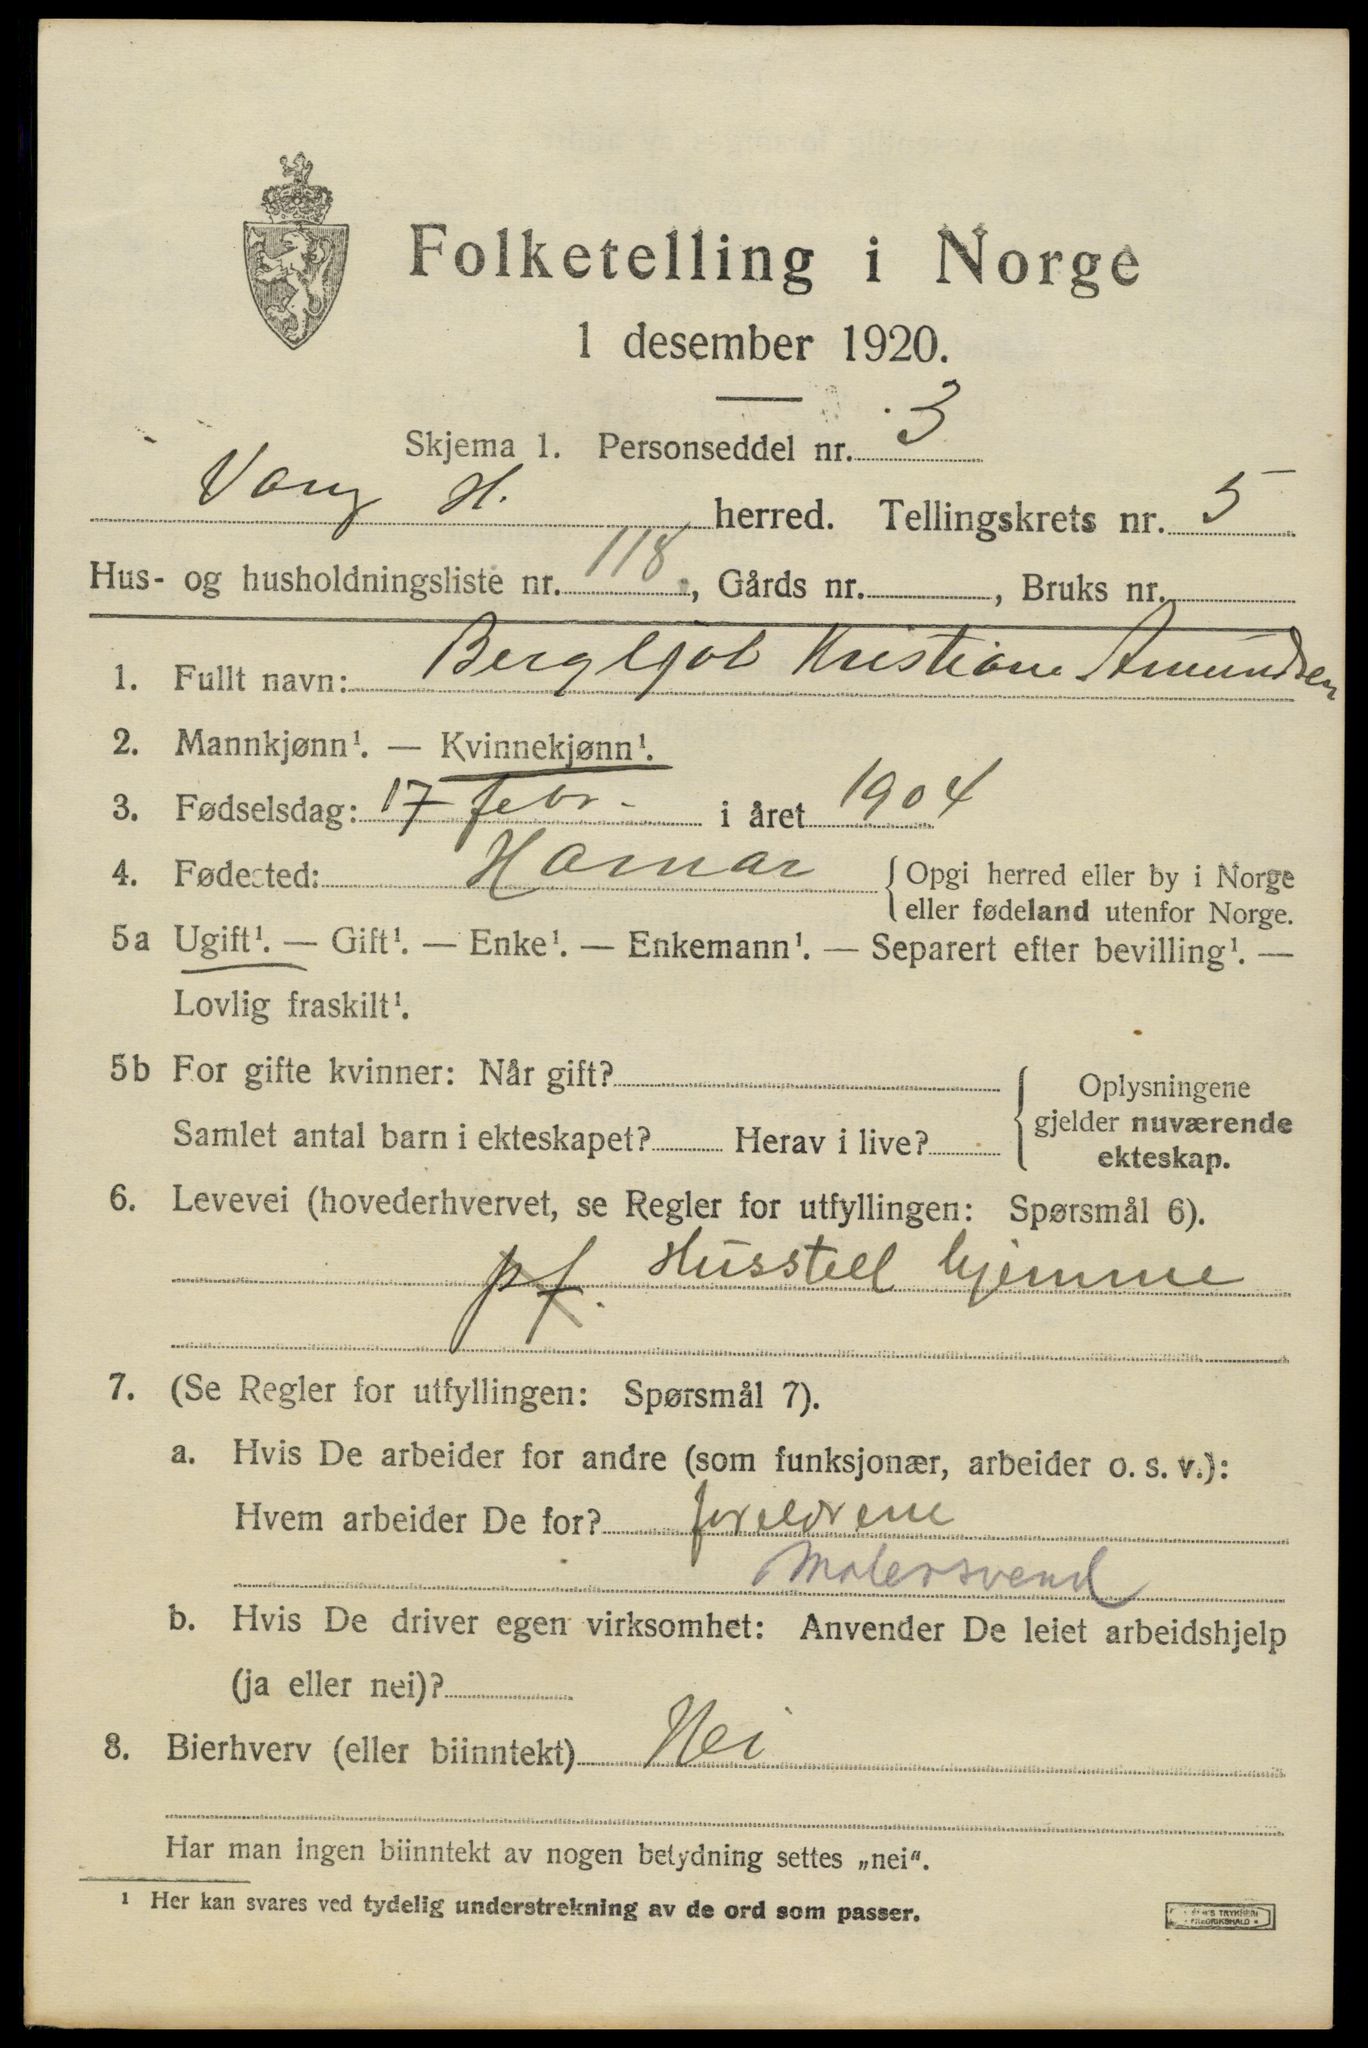 Folketelling i Norge
1 desember 1920.
Skjema 1. Personseddel nr. 3
Vang H. herred. Tellingskrets nr. 5
Hus- og husholdningsliste nr. 118, Gårds nr. , Bruks nr.
1. Fullt navn: Bergljot Kristiane Amundsen
2. Mannkjønn¹. — Kvinnekjønn¹.
3. Fødselsdag: 17 febr. i året 1904
4. Fødested: Hamar { Opgi herred eller by i Norge
eller fødeland utenfor Norge.
5a Ugift¹. — Gift¹. — Enke¹. — Enkemann¹. — Separert efter bevilling¹. —
Lovlig fraskilt¹.
5b For gifte kvinner: Når gift?
Samlet antal barn i ekteskapet? Herav i live?
{ Oplysningene
gjelder nuværende
ekteskap.
6. Levevei (hovederhvervet, se Regler for utfyllingen: Spørsmål 6).
pf. Husstell hjemme
7. (Se Regler for utfyllingen: Spørsmål 7).
a. Hvis De arbeider for andre (som funksjonær, arbeider o. s. v.):
Hvem arbeider De for? foreldrene
Malersvend
b. Hvis De driver egen virksomhet: Anvender De leiet arbeidshjelp
(ja eller nei)?
8. Bierhverv (eller biinntekt) Nei
Har man ingen biinntekt av nogen betydning settes „nei".
¹ Her kan svares ved tydelig understrekning av de ord som passer.
TRYKKERI
FREDRIKSHALD